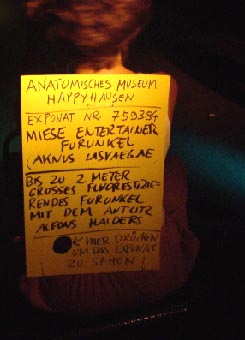 ANATOMISCHES MUSEUM
HAPPYHAUSEN
EXPONAT NR 759384
MIESE ENTERTAINER
FURUNKEL
(AKNUS LASVAEGAE
BIS ZU 2 METER
GROSSES FLUORESZIE-
RENDES FURUNKEL
MIT DEM ANTLITZ
ALFONS HAIDERS
HIER DRÜCKEN
UM DAS EXPONAT
ZU SEHEN!